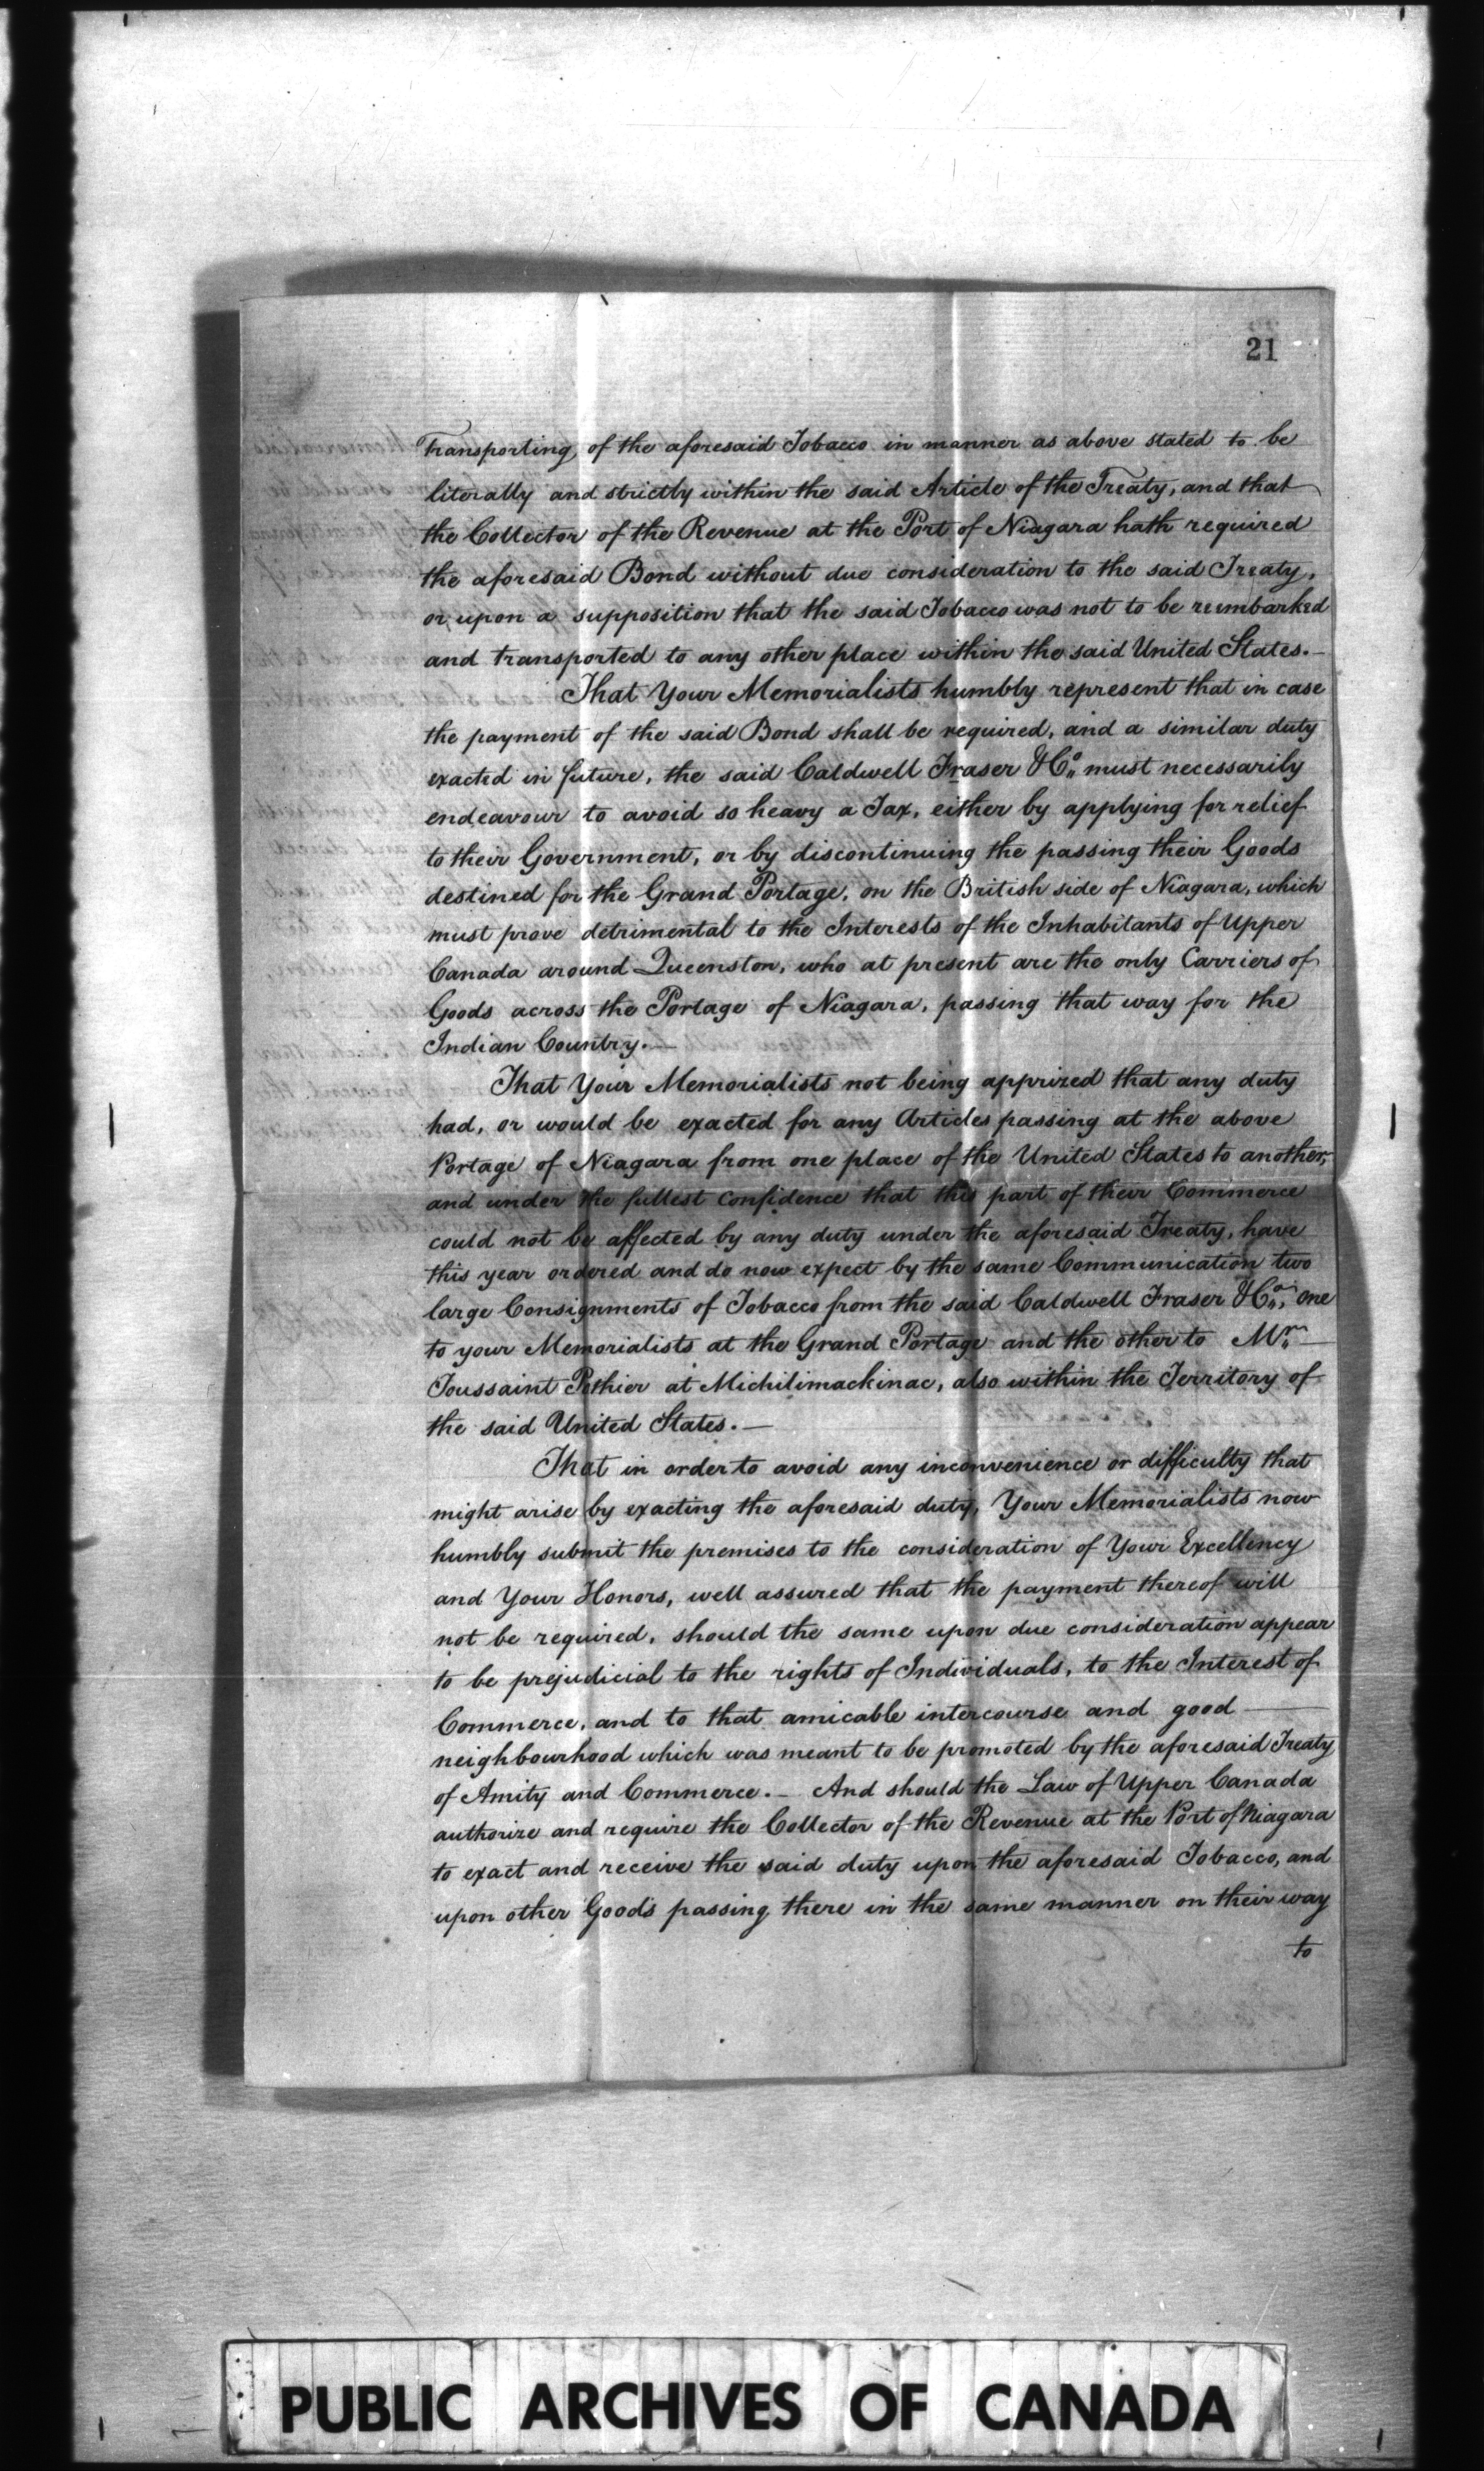 21
Transporting of the aforesaid Tobacco in manner as above stated to be
literally and strictly within the said Article of the Treaty, and that
the Collector of the Revenue at the Port of Niagara hath required
the aforesaid Bond without due consideration to the said Treaty,
or upon a supposition that the said Tobacco was not to be reimbarked
and transported to any other place within the said United States.—
That Your Memorialists humbly represent that in case
the payment of the said Bond shall be required, and a similar duty
exacted in future, the said Caldwell Fraser & Co. must necessarily
endeavour to avoid so heavy a Tax, either by applying for relief
to their Government, or by discontinuing the passing their Goods
destined for the Grand Portage, on the British side of Niagara, which
must prove detrimental to the Interests of the Inhabitants of Upper
Canada around Queenston, who at present are the only Carriers of
Goods across the Portage of Niagara, passing that way for the
Indian Country.—
That Your Memorialists not being apprized that any duty
had, or would be exacted for any Articles passing at the above
Portage of Niagara from one place of the United States to another,
and under the fullest confidence that this part of their Commerce
could not be affected by any duty under the aforesaid Treaty, have
this year ordered and do now expect by the same Communication two
large Consignments of Tobacco from the said Caldwell Fraser & Co., one
to your Memorialists at the Grand Portage and the other to Mr.—
Toussaint Pothier at Michilimackinac, also within the Territory of
the said United States.—
That in order to avoid any inconvenience or difficulty that
might arise by exacting the aforesaid duty, Your Memorialists now
humbly submit the premises to the consideration of Your Excellency
and Your Honors, well assured that the payment thereof will
not be required, should the same upon due consideration appear
to be prejudicial to the rights of Individuals, to the Interest of
Commerce, and to that amicable intercourse and good —
neighbourhood which was meant to be promoted by the aforesaid Treaty
of Amity and Commerce.— And should the Law of Upper Canada
authorize and require the Collector of the Revenue at the Port of Niagara
to exact and receive the said duty upon the aforesaid Tobacco, and
upon other Goods passing there in the same manner on their way
to
PUBLIC ARCHIVES OF CANADA